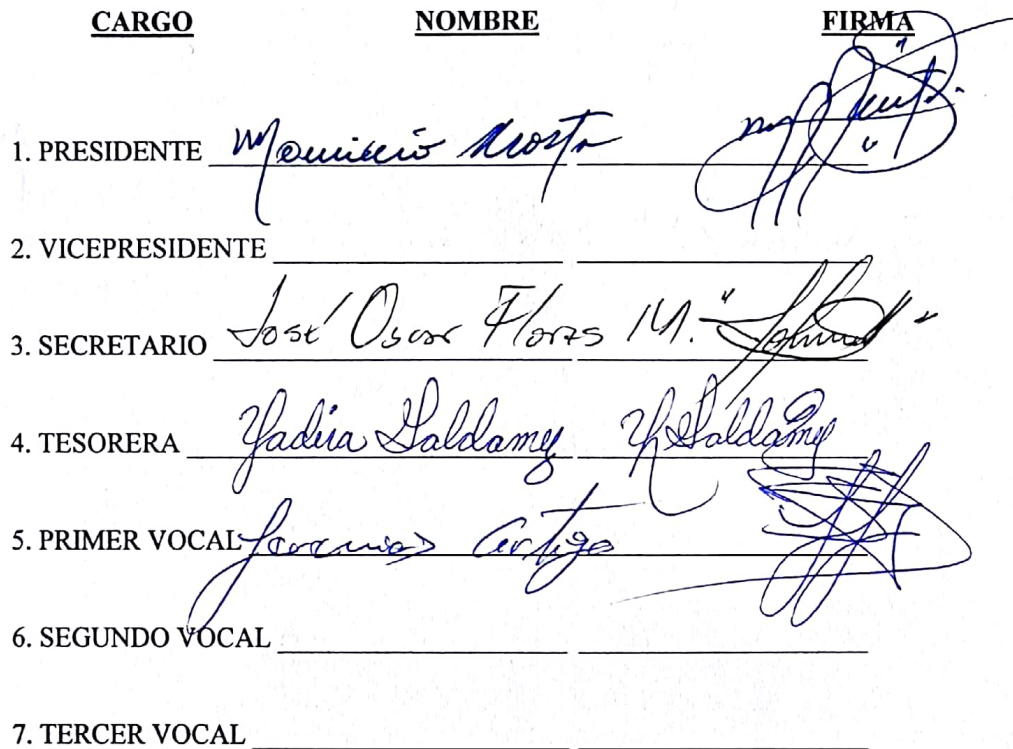 CARGO NOMBRE FIRMA
1. PRESIDENTE Mauricio Acosta
2. VICEPRESIDENTE
3. SECRETARIO José Oscar Flores M.
4. TESORERA Yadira Saldamy Y Saldamy
5. PRIMER VOCAL Jeremias Artiga
6. SEGUNDO VOCAL
7. TERCER VOCAL